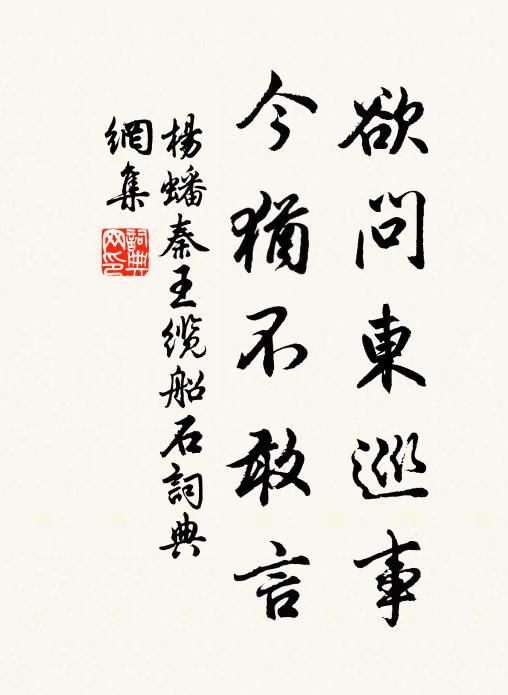 欲問東巡事
今猶不敢言
楊蟠秦王纜船石詞典
網集
詞典
网印